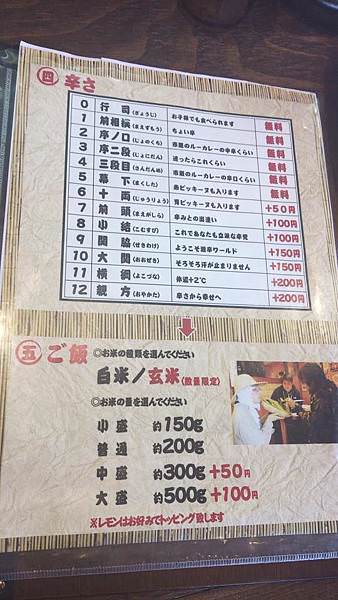 四 辛さ
0 行司(ぎょうじ) お子様でも食べられます 無料
1 前相撲(まえずもう) ちょい辛 無料
2 序ノ口(じょのくち) 市販のルーカレーの中辛くらい 無料
3 序二段(じょにだん) 迷ったらこれくらい 無料
4 三段目(さんだんめ) 市販のルーカレーの辛口くらい 無料
5 幕下(まくした) 赤ピッキーヌも入ります 無料
6 十両(じゅうりょう) 青ピッキーヌも入ります +50円
7 前頭(まえがしら) 辛みとの出逢い +100円
8 小結(こむすび) これであなたも立派な辛党 +100円
9 関脇(せきわけ) ようこそ激辛ワールド +150円
10 大関(おおぜき) そろそろ汗が止まりません +150円
11 横綱(よこづな) 体温+2℃ +200円
12 親方(おやかた) 辛さから幸せへ +200円
五 ご飯 ◎お米の種類を選んでください
白米/玄米(数量限定)
◎お米の量を選んでください
小盛 約150g
普通 約200g
中盛 約300g +50円
大盛 約500g +100円
※レモンはお好みでトッピング致します